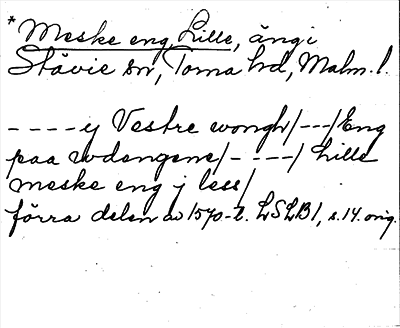 * Meske eng, Lille, äng i
Stävie sn, Torna hd, Malm. l.
- - - - y Vestre wongh/---/Eng
paa wdengene/- - - -/ Lille
meske eng j less/
förra delen av 1570-t. LSLB1, s. 14. orig.